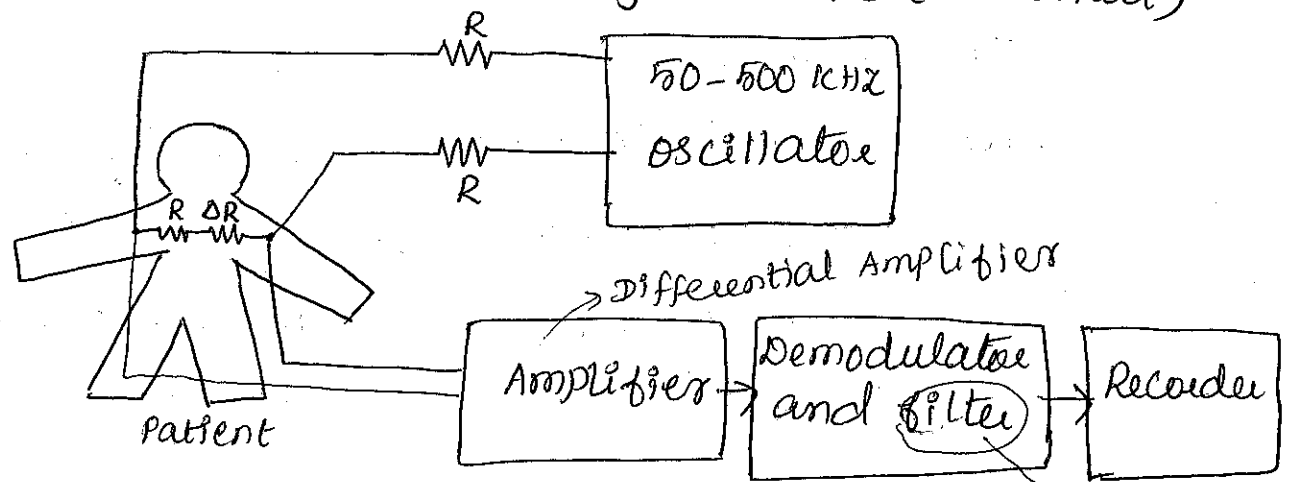 R
50-500 KHZ
oscillator
R
R ΔR
Differential Amplifier
Amplifier
Demodulator
and filter
Recorder
Patient